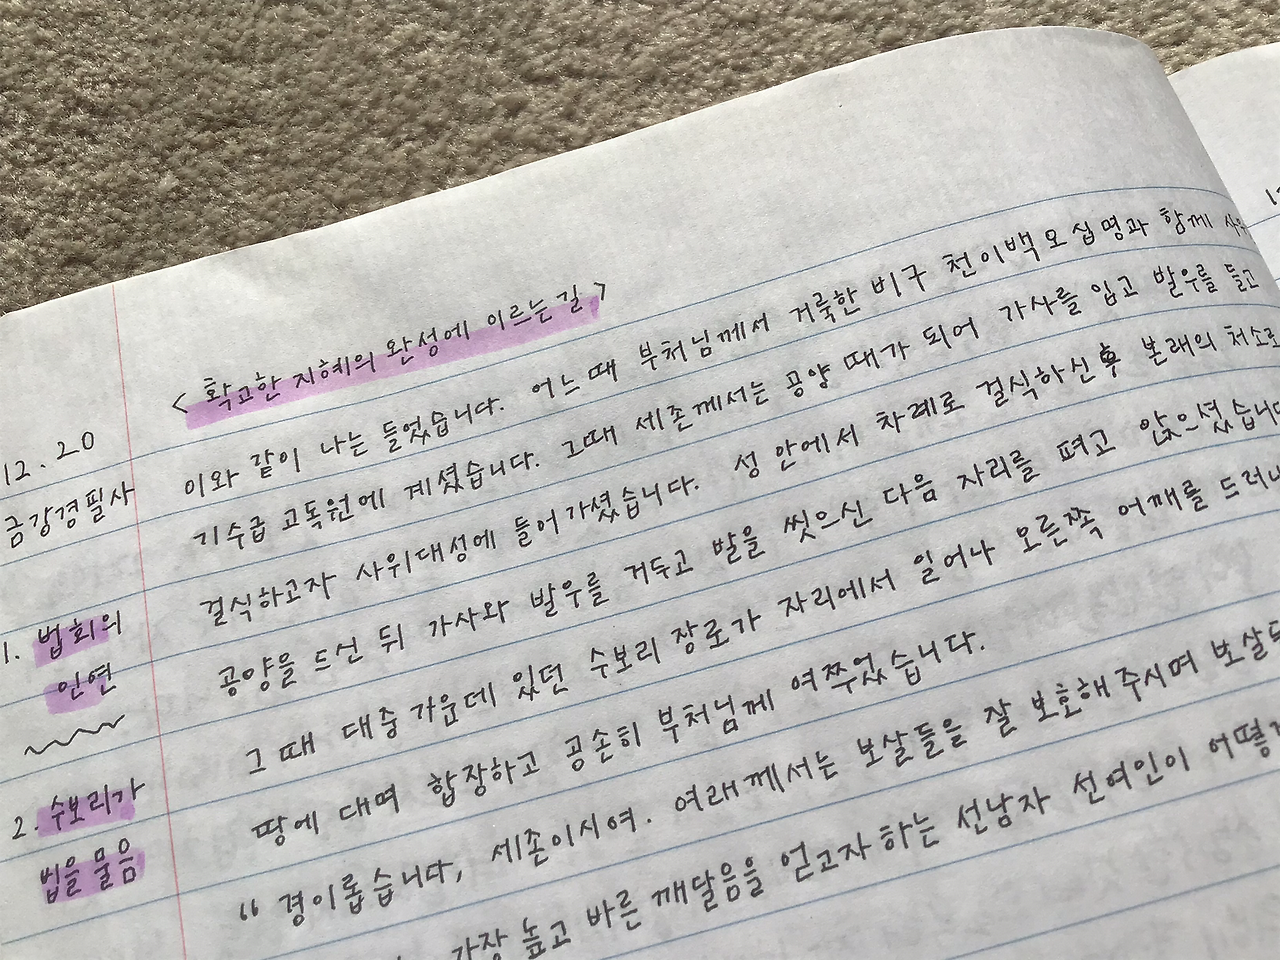 < 확고한 지혜의 완성에 이르는 길 >
12.20
금강경필사
이와 같이 나는 들었습니다. 어느 때 부처님께서 거룩한 비구 천이백 오십명과 함께
기수급 고독원에 계셨습니다. 그때 세존께서는 공양 때가 되어 가사를 입고 발우를 들고
걸식하고자 사위대성에 들어가셨습니다. 성 안에서 차례로 걸식하신 후 본래의 처소로
1. 법회의
인연
공양을 드신 뒤 가사와 발우를 거두고 발을 씻으신 다음 자리를 펴고 앉으셨습니다
2. 수보리가
법을 물음
그 때 대중 가운데 있던 수보리 장로가 자리에서 일어나 오른쪽 어깨를
땅에 대며 합장하고 공손히 부처님께 여쭈었습니다.
“ 경이롭습니다, 세존이시여. 여래께서는 보살들을 잘 보호해주시며
가장 높고 바른 깨달음을 얻고자 하는 선남자 선여인이